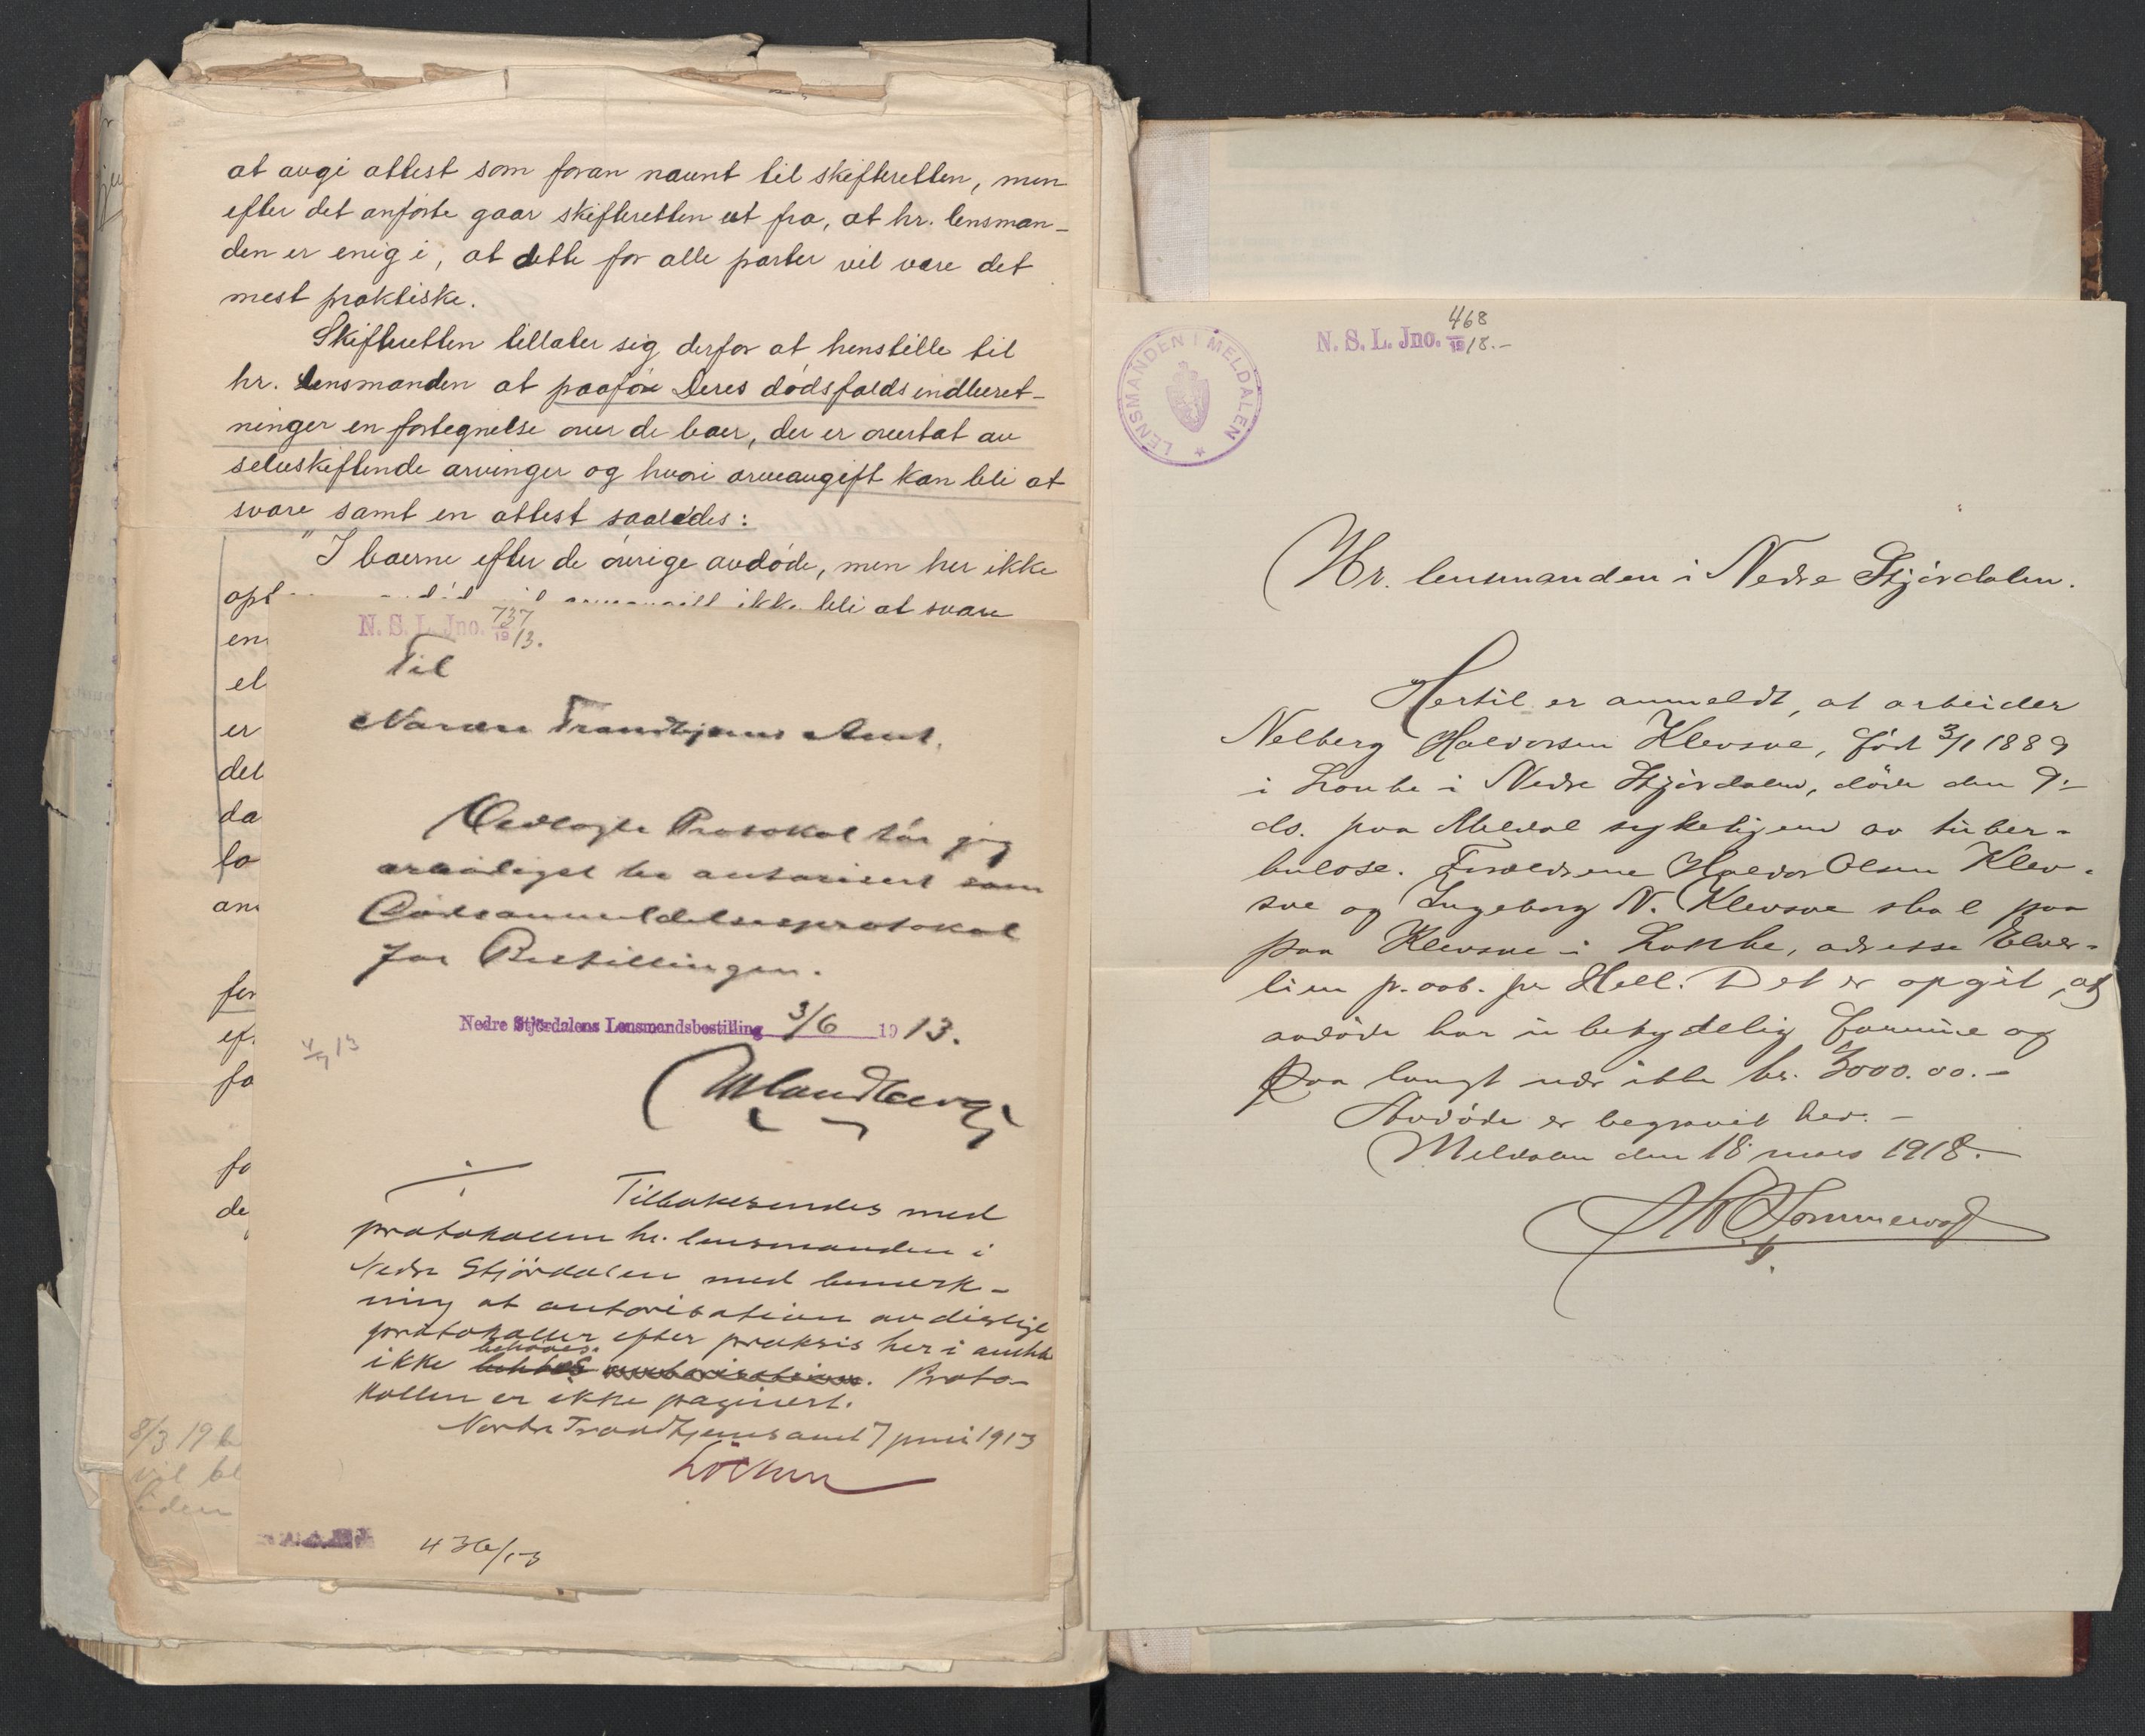 at avgi attest som foran nævnt til skifteretten, men
efter det anförte gaar skifteretten ut fra, at hr. lensman-
den er enig i, at dette for alle parter vil være det
mest praktiske.
Skifteretten tillater sig derfor at henstille til
hr. lensmanden at paaföre Deres dödsfaldsindberet-
ninger en fortegnelse over de boer, der er overtat av
selvskiftende arvinger og hvori arveavgift kan bli at
svare samt en attest saaledes:
"I boerne efter de övrige avdöde, men her ikke
opt ikke bli at svare
en
el
er
det
da
lo
an
for
ef
fo
fo
de
8/3 19
vil bl
N. S. L. Jno. 737/1913.
Til
Nordre Trondhjems Amt.
Vedlagte Protokol tör jeg
ærbödigst be autoriseret som
Dödsanmeldelsesprotokol
for Bestillingen.
Nedre Stjördalens Lensmandsbestilling 3/6 1913.
Tilbakesendes med
protokollen hr. lensmanden i
Nedre Stjördalen med bemerk-
ning at autorisation av dislige
protokoller efter praksis her i amtet
behöves.
ikke Proto-
kollen er ikke paginert.
Nordre Trondhjems amt 7 juni 1913
Löchen
436/13
LENSMANDEN I MELDALEN
N. S. L. Jno. 468/1918.-
Hr. lensmanden i Nedre Stjördalen.
Hertil er anmeldt, at arbeider
Nelberg Halvorsen Klevsve, född 3/1 1889
i Lonke i Nedre Stjördalen, döde den 9:
ds. paa Meldal sykehjem av tuber-
kulose. Forældrene Halvor Olsen Klev-
sve og Ingeborg N. Klevsve skal
paa Klevsve i Lonke, adresse Elver-
lien p. aab. pr Hell. Det er opgit, at
avdöde har u betydelig formue og
paa langt nær ikke kr. 3000.00.-
Avdöde er begravet her.-
Meldalen den 18 mars 1918.-